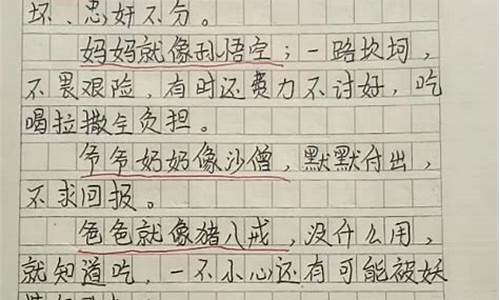 坏、忠奸不分。
妈妈就像孙悟空；一路坎坷，
不畏艰险，有时还费力不讨好，吃
喝拉撒全负担。
爷爷奶奶像沙僧，默默付出，
不求回报。
爸爸就像猪八戒，没什么用，
就知道吃，一不小心还有可能被妖